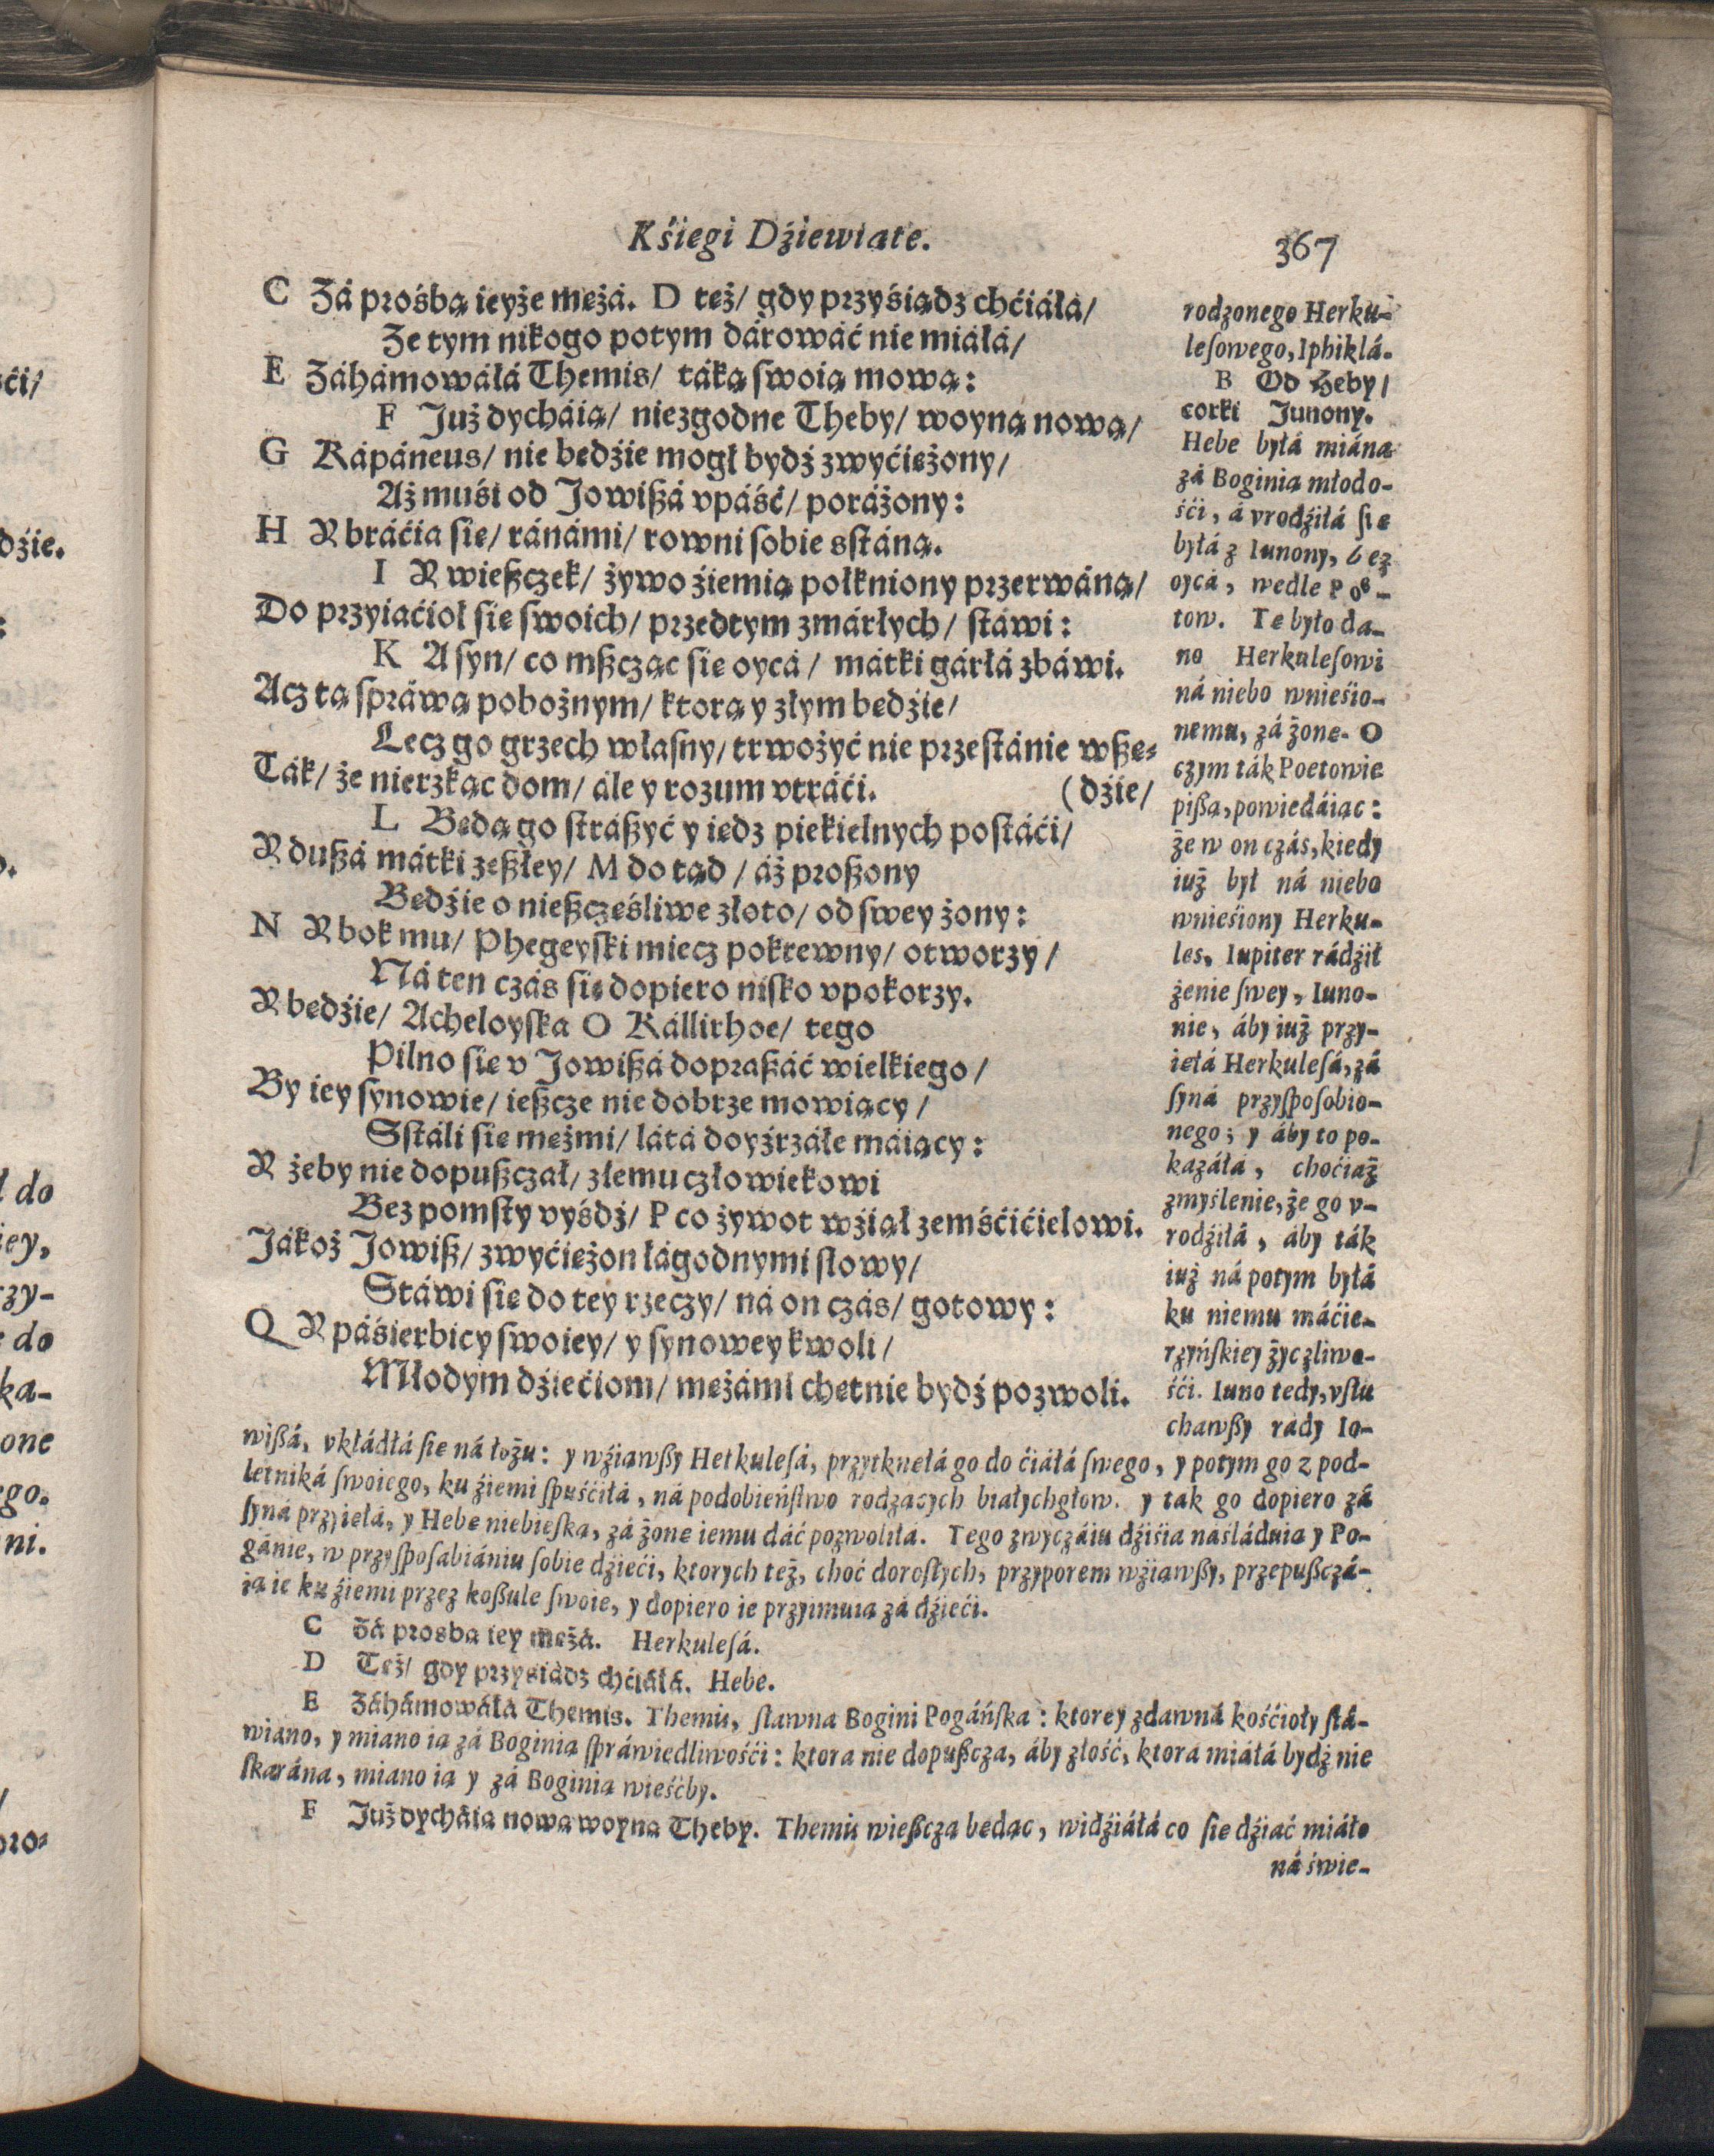 Kśięgi Dźiewiąte.
367
C Zá prośbą ieyże mężá. D też/ gdy przyśiądz chćiáłá/
Że tym nikogo potym dárowáć nie miáłá/
E Záhámowáłá Themis/ táką swoią mową:
F Już dycháią/ niezgodne Theby/ woyną nową/
G Kápáneus/ nie będźie mogł bydź zwyćiężony/
Aż muśi od Jowiszá vpáść/ poráżony:
H Y bráćia się/ ránámi/ rowni sobie sstáną.
I Y wieszczek/ żywo źiemią połkniony przerwáną/
Do przyiaćioł się swoich/ przedtym zmárłych/ stáwi:
K A syn/ co mszcząc się oycá/ mátki gárłá zbáwi.
Acz tą spráwą pobożnym/ ktorą y złym będźie/
Lecz go grzech własny/ trwożyć nie przestánie wszę-
Ták/ że nierzkąc dom/ ále y rozum vtráći.
(dźie/
L Będą go strászyć y iędz piekielnych postáći/
Y duszá mátki zeszłey/ M do tąd/ áż proszony
Będźie o nieszczęśliwe złoto/ od swey żony:
N Y bok mu/ Phegeyski miecz pokrewny/ otworzy/
Ná ten czás się dopiero nisko vpokorzy.
Y będźie/ Acheloyska O Kállirhoe/ tego
Pilno się v Jowiszá dopraszáć wielkiego/
By iey synowie/ ieszcze nie dobrze mowiący/
Sstáli się mężmi/ látá doyźrzáłe máiący:
Y żeby nie dopuszczał/ złemu człowiekowi
Bez pomsty vyśdź/ P co żywot wźiął zemśćićielowi.
Jákoż Jowisz/ zwyćiężon łágodnymi słowy/
Stáwi się do tey rzeczy/ ná on czás/ gotowy:
Q Y páśierbicy swoiey/ y synowey kwoli/
Młodym dźiećiom/ mężámi chętnie bydź pozwoli.
rodzonego Herku-
lesowego, Iphiklá.
B Od Heby/
corki Junony.
Hebe byłá miána
zá Boginią młodo-
śći, á vrodźiłá się
byłá z Iunony, bez
oycá, wedle Poë-
tow. Tę było da-
no Herkulesowi
ná niebo wnieśio-
nemu, zá żonę. O
czym ták Poetowie
piszą, powiedáiąc:
że w on czás, kiedy
iuż był ná niebo
wnieśiony Herku-
les, Iupiter rádźił
żenie swey, Iuno-
nie, áby iuż przy-
ięłá Herkulesá, zá
syná przysposobio-
nego; y áby to po-
kazáłá, choćiaż
zmyślenie, że go v-
rodźiłá, áby ták
iuż ná potym byłá
ku niemu máćie-
rzyńskiey życzliwo-
śći. Iuno tedy, vsłu
chawszy rády Io-
wiszá, vkłádłá się ná łożu: y wźiąwszy Herkulesá, przytknęłá go do ćiáłá swego, y potym go z pod-
letniká swoiego, ku źiemi spuśćiłá, ná podobieństwo rodzących białychgłow. y tak go dopiero zá
syná przyięłá, y Hebę niebieską, zá żonę iemu dáć pozwoliłá. Tego zwyczáiu dźiśia náśláduią y Po-
gánie, w przysposabiániu sobie dźieći, ktorych też, choć dorosłych, przyporem wźiąwszy, przepuszczá-
ią ie ku źiemi przez koszule swoie, y dopiero ie przyimuią zá dźieći.
C Zá prosbą iey mężá. Herkulesá.
D Też/ gdy przysiądz chćiáłá. Hebe.
E Záhámowáłá Themis. Themis, sławna Bogini Pogáńska: ktorey zdawná kośćioły stá-
wiano, y miano ią zá Boginią spráwiedliwośći: ktora nie dopuszcza, áby złość, ktora miáłá bydź nie
skarána, miano ią y zá Boginią wieśćby.
F Już dycháią nową woyną Theby. Themis wieszczą będąc, widźiáłá co się dźiać miáło
ná świe-